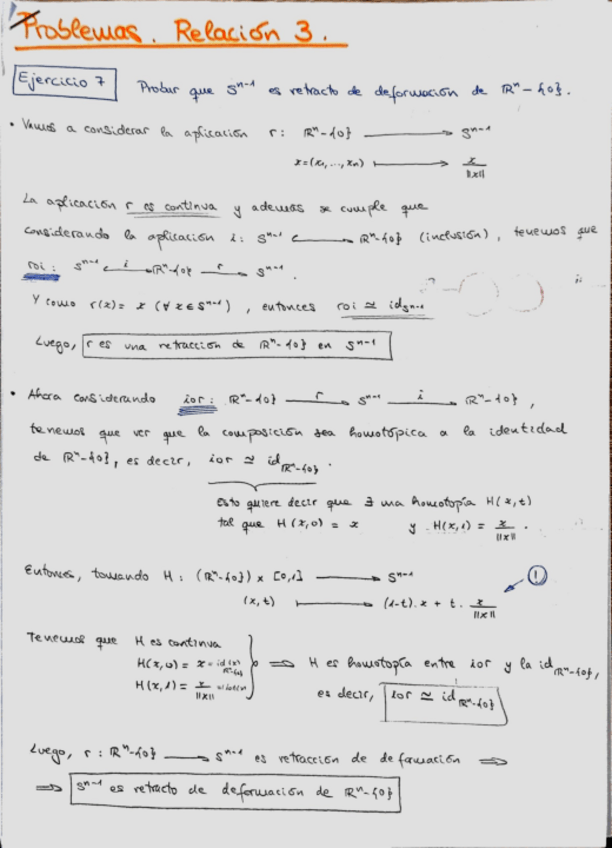 Problemas. Relación 3.
Ejercicio 7 Probar que Sⁿ⁻¹ es retracto de deformación de ℝⁿ-{0}.
• Vamos a considerar la aplicación r: ℝⁿ-{0} ⟶ Sⁿ⁻¹
x=(x₁,...,xₙ) ⟼ x/||x||
La aplicación r es continua y además se cumple que
considerando la aplicación i: Sⁿ⁻¹ ↪ ℝⁿ-{0} (inclusión), tenemos que
roi: Sⁿ⁻¹ ↪i ℝⁿ-{0} ⟶r Sⁿ⁻¹.
Y como r(x)= x (∀x∈Sⁿ⁻¹), entonces roi ≃ id_Sⁿ⁻¹
Luego, r es una retracción de ℝⁿ-{0} en Sⁿ⁻¹
• Ahora considerando ior: ℝⁿ-{0} ⟶r Sⁿ⁻¹ ⟶i ℝⁿ-{0},
tenemos que ver que la composición sea homotópica a la identidad
de ℝⁿ-{0}, es decir, ior ≃ id_ℝⁿ-{0}.
Esto quiere decir que ∃ una homotopía H(x,t)
tal que H(x,0) = x y H(x,1) = x/||x||.
Entonces, tomando H: (ℝⁿ-{0}) x [0,1] ⟶ Sⁿ⁻¹ !
(x,t) ⟼ (1-t).x + t. x/||x||
Tenemos que H es continua
H(x,0) = x = id(x)_ℝⁿ-{0} ⟹ H es homotopía entre ior y la id_ℝⁿ-{0},
H(x,1) = x/||x|| es decir, ior ≃ id_ℝⁿ-{0}
Luego, r: ℝⁿ-{0} ⟶ Sⁿ⁻¹ es retracción de deformación ⟹
⟹ Sⁿ⁻¹ es retracto de deformación de ℝⁿ-{0}